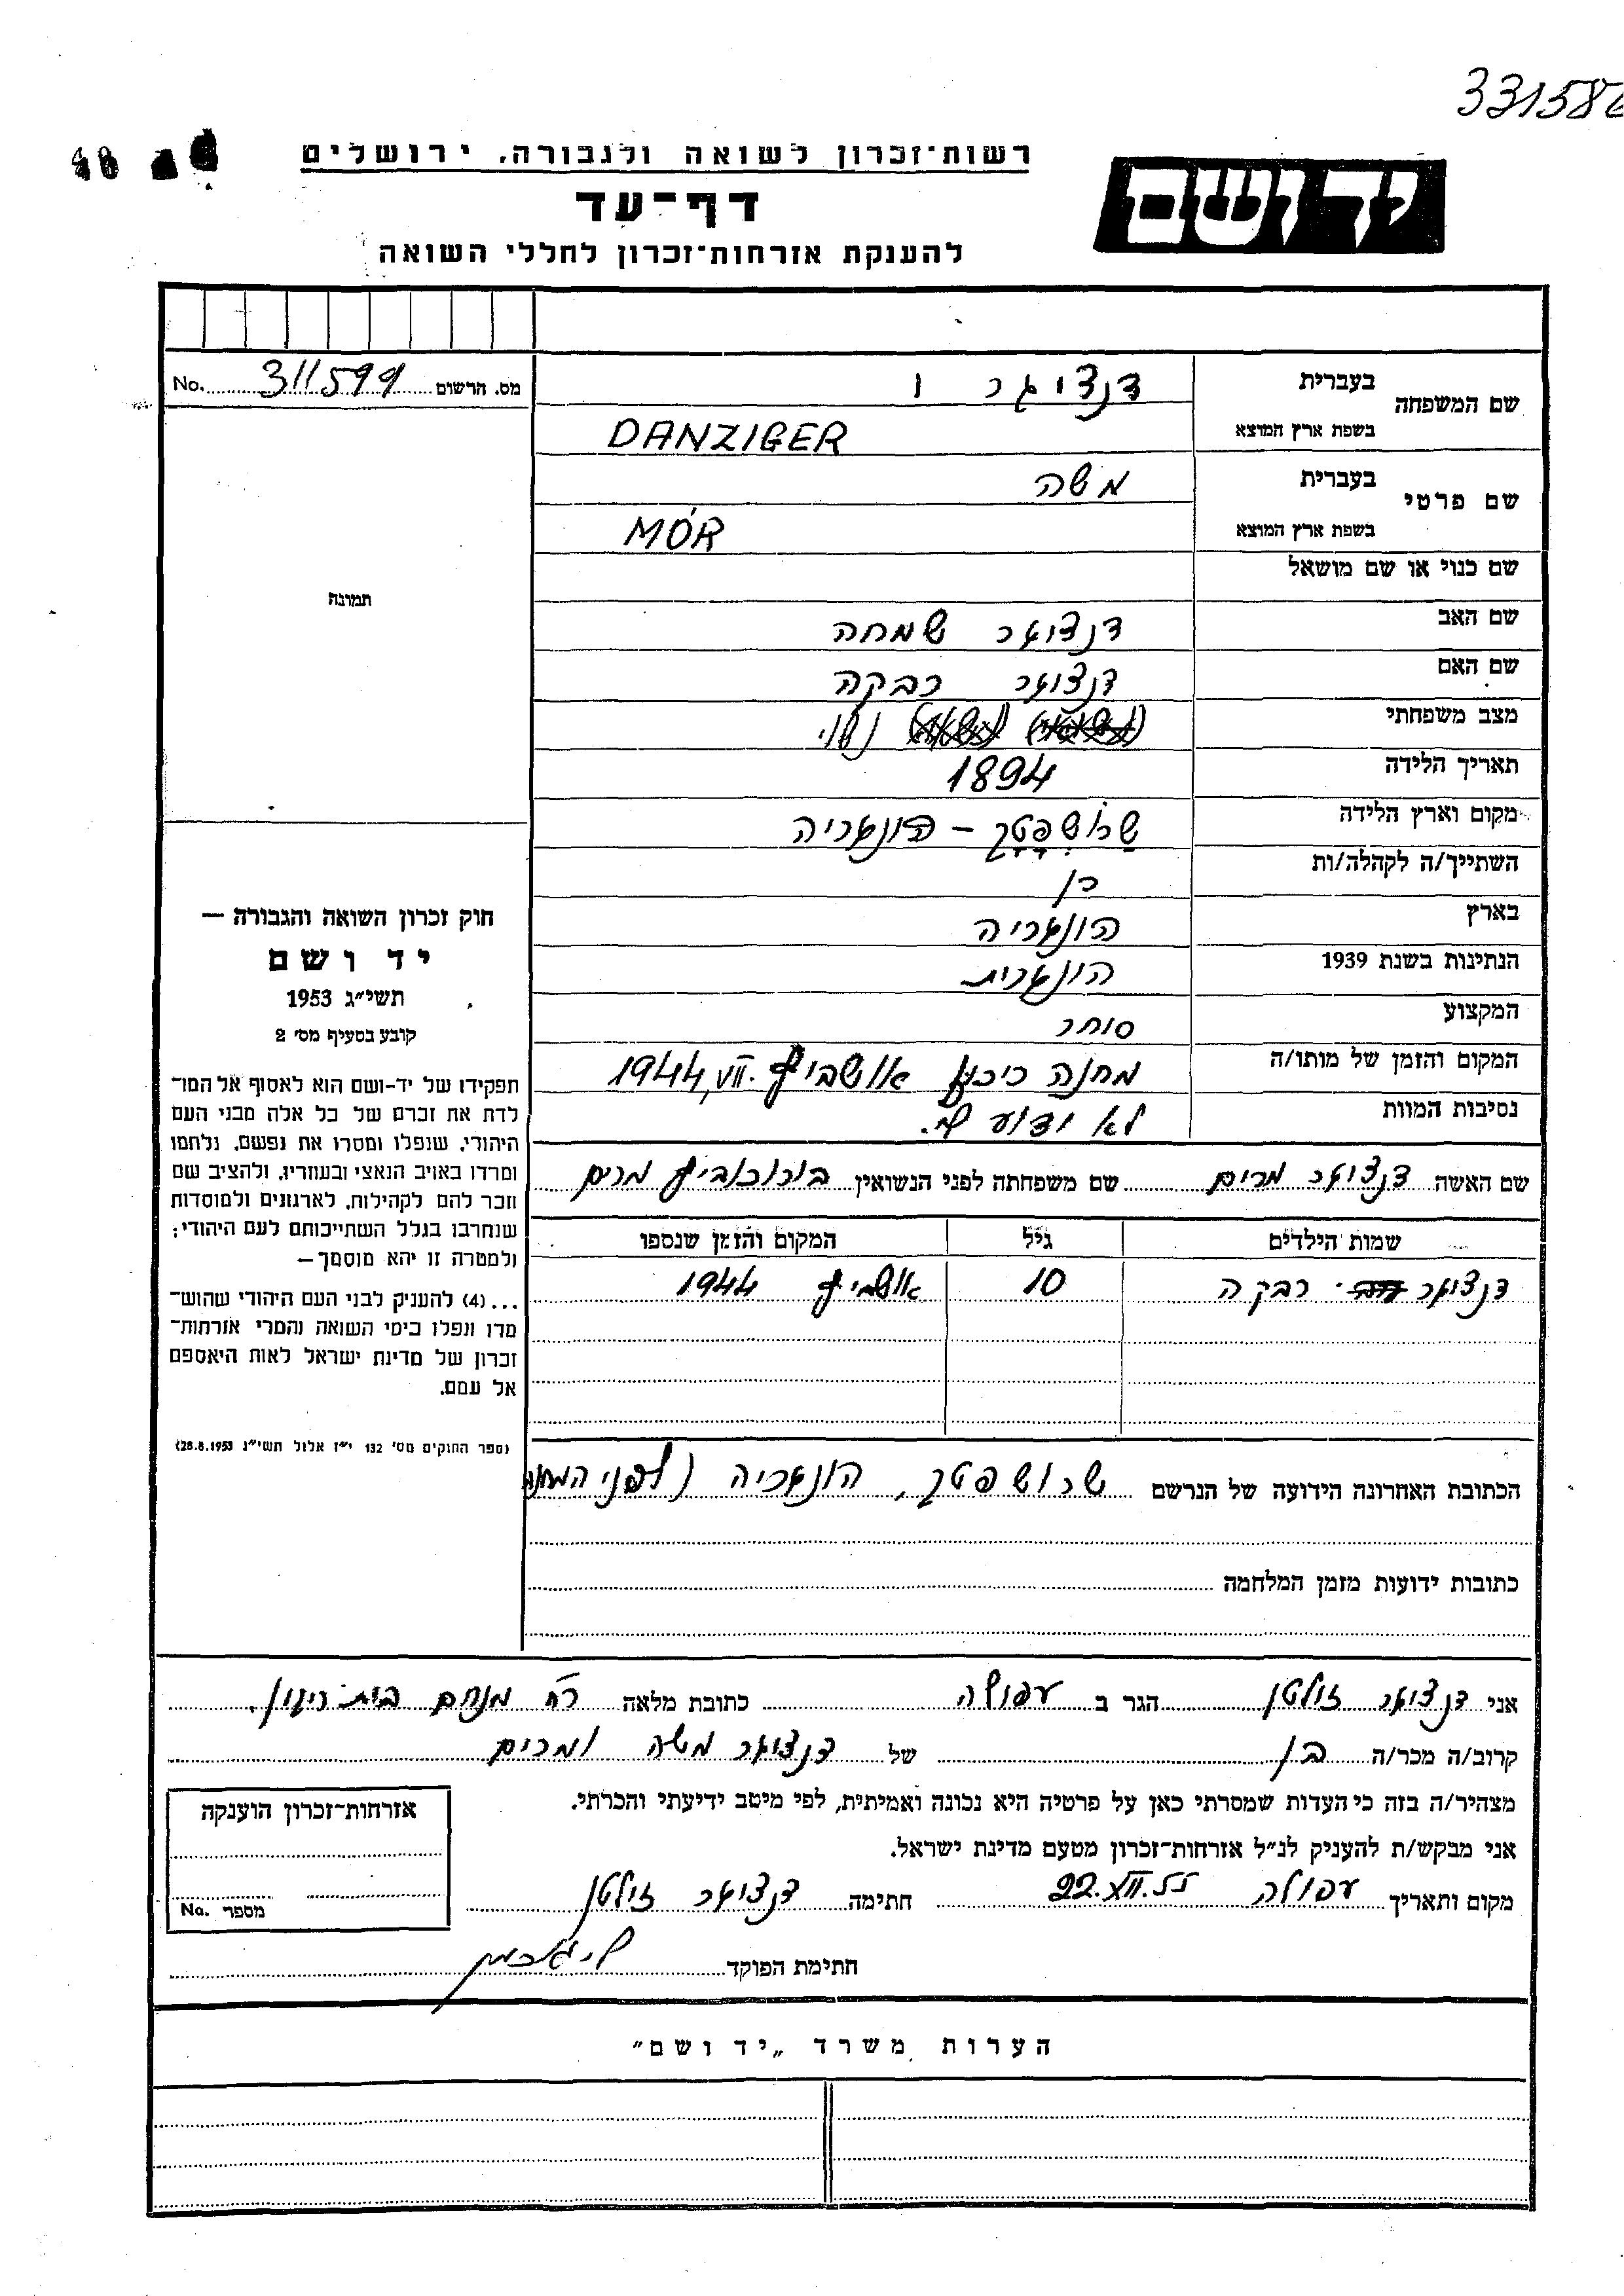 331586
רשות־זכרון לשואה ולגבורה, ירושלים
יד ושם
דף־עד
להענקת אזרחות־זכרון לחללי השואה
מס. הרשום 311599 No.
שם המשפחה בעברית דנציגר
בשפת ארץ המוצא DANZIGER
שם פרטי בעברית משה
בשפת ארץ המוצא MÓR
שם כנוי או שם מושאל
תמונה
שם האב דנציגר שמחה
שם האם דנציגר רבקה
מצב משפחתי נשוי
תאריך הלידה 1894
מקום וארץ הלידה שרושפטק – הונגריה
השתייך/ה לקהלה/ות כן
בארץ הונגריה
הנתינות בשנת 1939 הונגרית
המקצוע סוחר
המקום והזמן של מותו/ה מחנה ריכוז אושביץ .VII, 1944
נסיבות המוות לא ידוע לי.
שם האשה דנציגר מרים שם משפחתה לפני הנשואין מרים
שמות הילדים גיל המקום והזמן שנספו
דנציגר רבקה 10 אושביץ 1944
חוק זכרון השואה והגבורה —
יד ושם
תשי״ג 1953
קובע בסעיף מס׳ 2
תפקידו של יד-ושם הוא לאסוף אל המו־
לדת את זכרם של כל אלה מבני העם
היהודי, שנפלו ומסרו את נפשם, נלחמו
ומרדו באויב הנאצי ובעוזריו, ולהציב שם
וזכר להם לקהילות, לארגונים ולמוסדות
שנחרבו בגלל השתייכותם לעם היהודי;
ולמטרה זו יהא מוסמך—
...(4) להעניק לבני העם היהודי שהוש־
מדו ונפלו בימי השואה והמרי אזרחות־
זכרון של מדינת ישראל לאות היאספם
אל עמם.
(ספר החוקים מס׳ 132 י״ז אלול תשי״ג 28.8.1953)
הכתובת האחרונה הידועה של הנרשם שרושפטק, הונגריה (לפני המחנה
כתובות ידועות מזמן המלחמה
אני דנציגר זולטן הגר ב עפולה כתובת מלאה רח׳ מנחם
קרוב/ה מכר/ה בן של דנציגר משה ומרים
מצהיר/ה בזה כי העדות שמסרתי כאן על פרטיה היא נכונה ואמיתית, לפי מיטב ידיעתי והכרתי.
אני מבקש/ת להעניק לנ״ל אזרחות־זכרון מטעם מדינת ישראל.
מקום ותאריך עפולה 22.XII.55 חתימה דנציגר זולטן
חתימת הפוקד
אזרחות־זכרון הוענקה
מספר No.
הערות משרד „יד ושם״